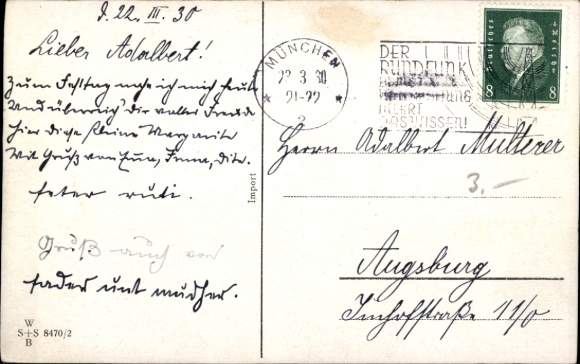 d. 22. III. 30
Lieber Adalbert!
Zum Festtag nahe ich mich heute
und überreich dir voller Freude
hier diese kleine Margarite
Mit Gruß von
feter ruti.
Gruß auch von
fader unt mudher.
W
S+S 8470/2
B
Import
MÜNCHEN
22 3 30
21-22
* *
2
DER
RUNDFUNK
FÜHRT
WISSEN!
Deutsches Reich
8 8
Herrn Adalbert Multerer
3.-
Augsburg
Imhofstraße 11/0